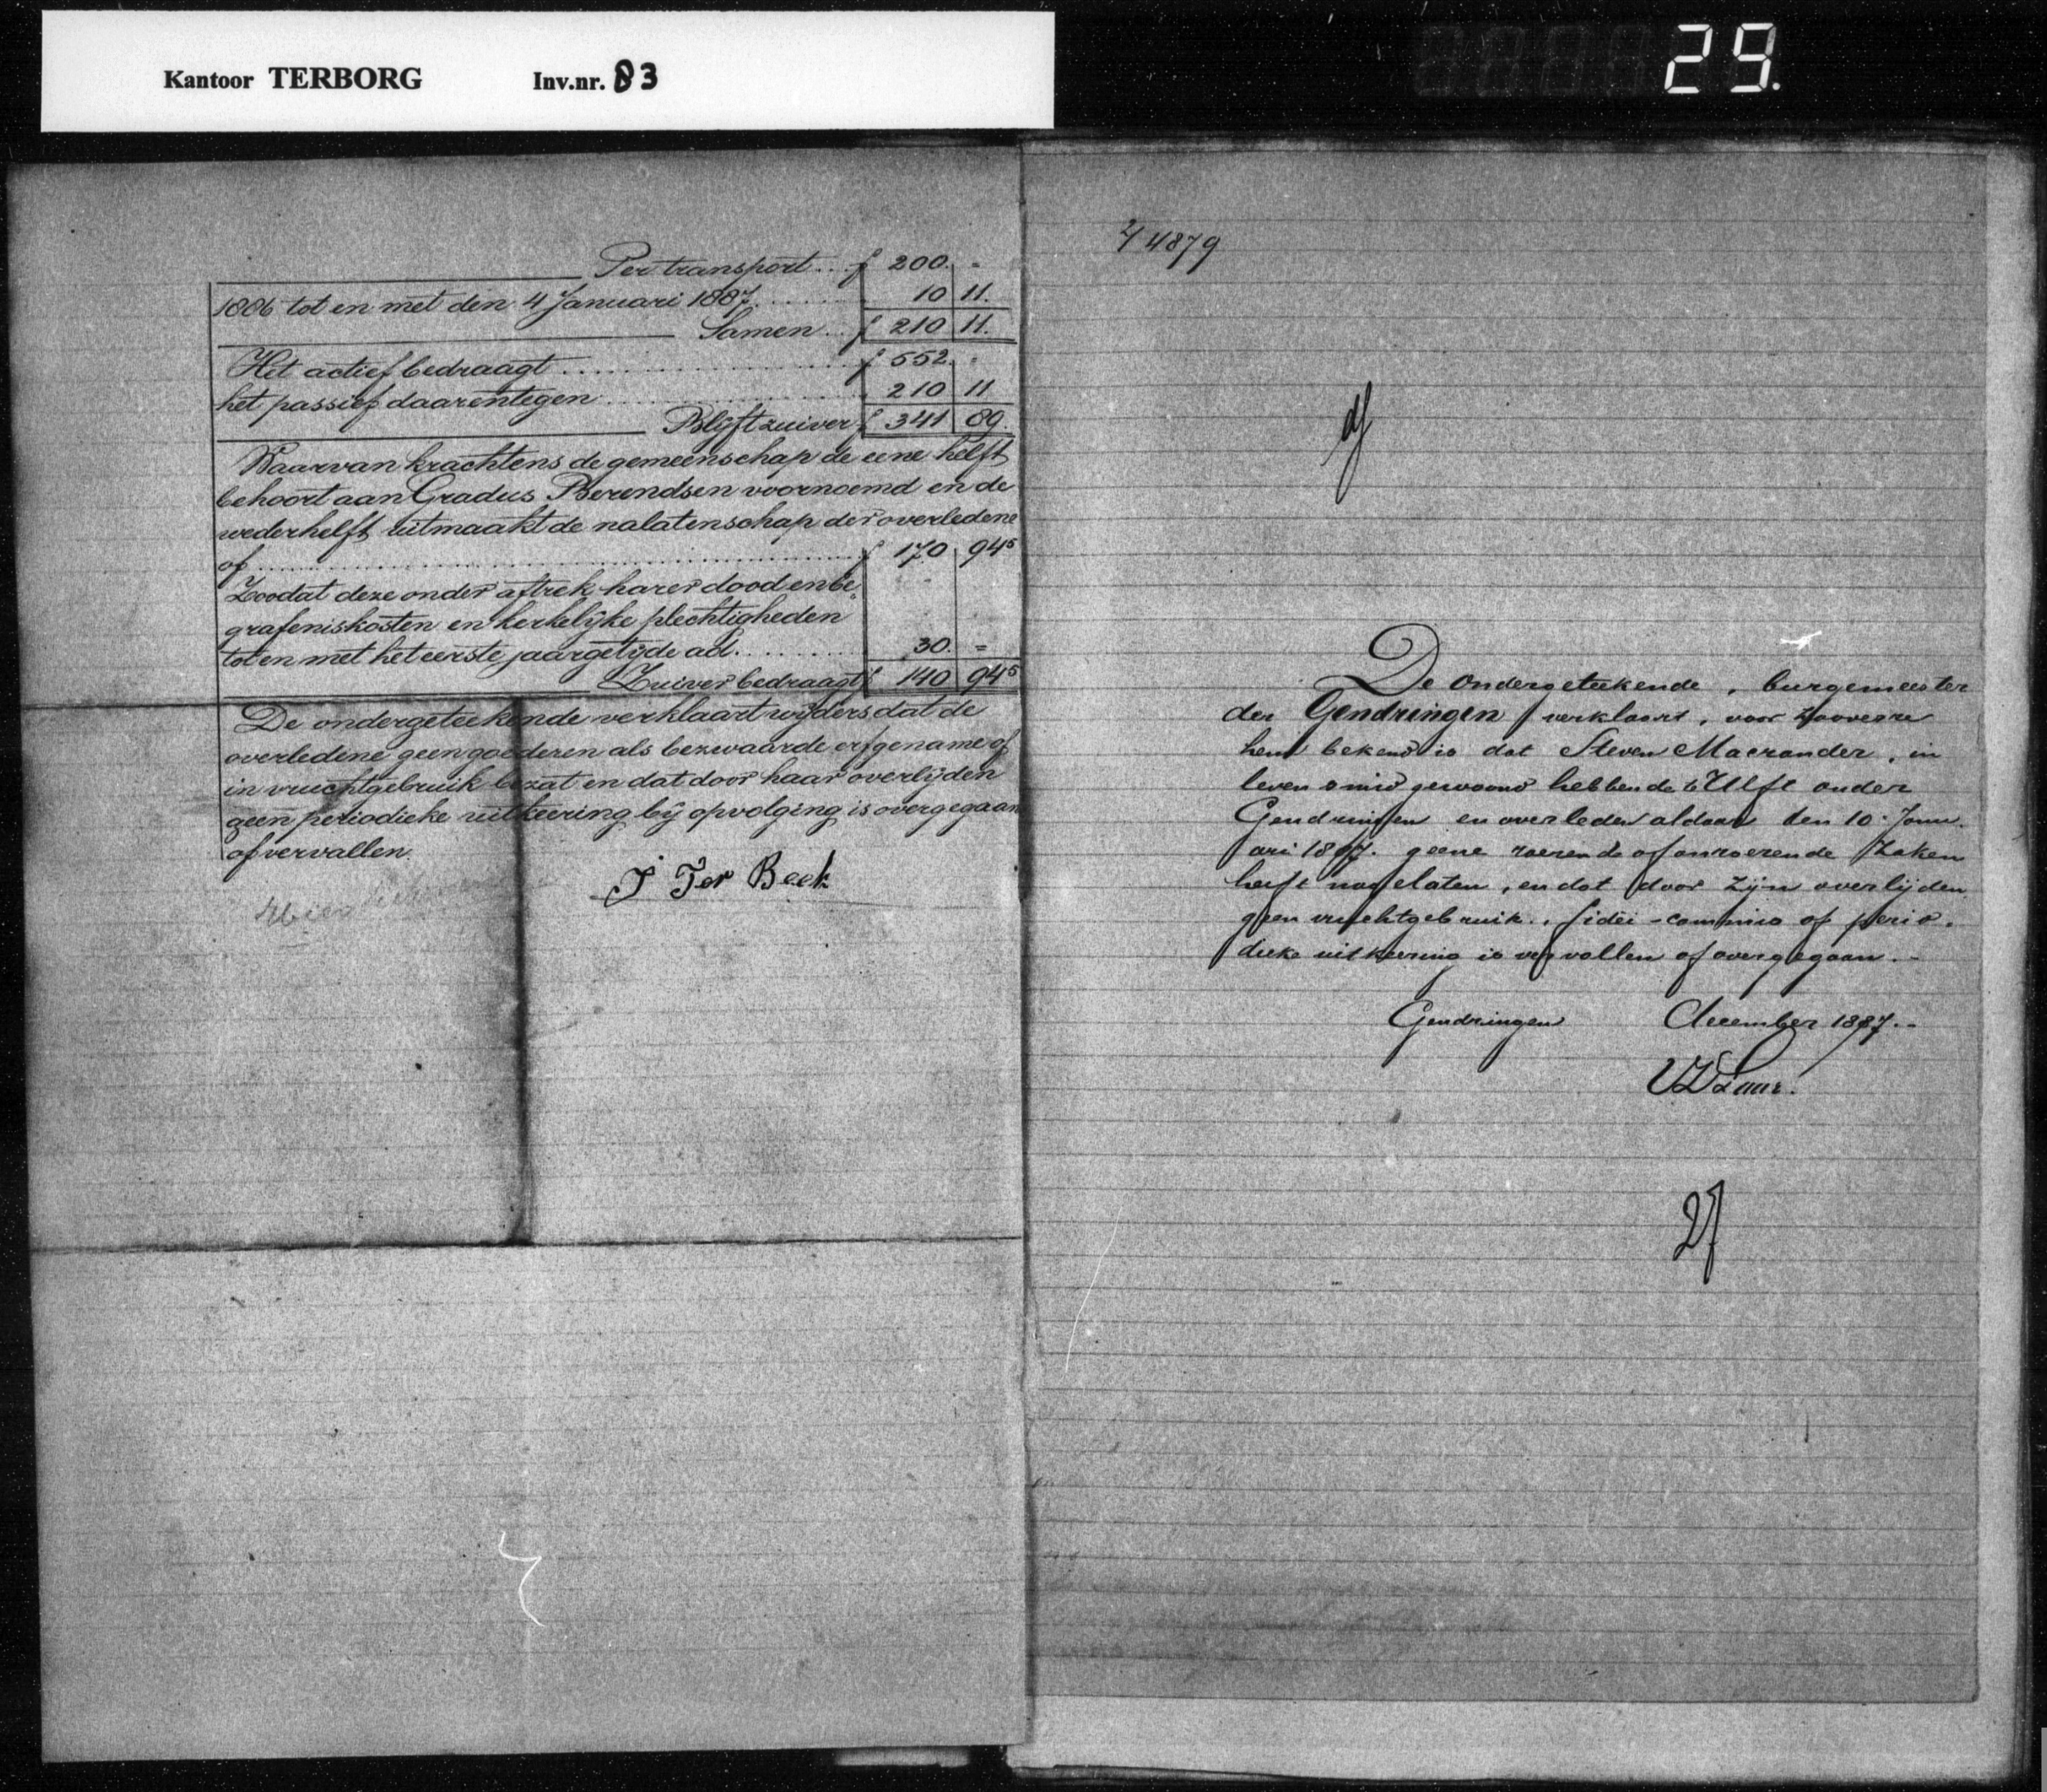 Kantoor TERBORG Inv.nr. 83
29.
Per transport . . . f 200. =
1886 tot en met den 4 Januari 1887. . . . . . 10 11.
Samen . . f 210 11.
Het actief bedraagt . . . . . . . . . . f 552. =
het passief daarentegen . . . . . . . . . 210 11
Blijft zuiver f 341 89.
Waarvan krachtens de gemeenschap de eene helft
behoort aan Gradus Berendsen voornoemd en de
wederhelft uitmaakt de nalatenschap der overledene
of . . . . . . . . . . . . . . . . f 170 94⁵
Zoodat deze onder aftrek harer dood en be„
grafeniskosten en kerkelijke plechtigheden
tot en met het eerste jaargetijde ad. . . . . . . 30. =
Zuiver bedraagt f 140 94⁵
De ondergeteekende verklaart wijders dat de
overledene geen goederen als bezwaarde erfgename of
in vruchtgebruik bezat en dat door haar overlijden
geen periodieke uitkeering bij opvolging is overgegaan
of vervallen.
J Ter Beek
4879
De ondergeteekende, burgemeester
der Gendringen verklaart, voor zooverre
hem bekend is dat Steven Macrander, in
leven smid gewoond hebbende te Ulft onder
Gendringen en overleden aldaar den 10 Janu-
ari 1887. geene roerende of onroerende zaken
heeft nagelaten, en dat door zijn overlijden
geen vruchtgebruik, fidëi-commis of perio-
dieke uitkeering is vervallen of overgegaan. -
Gendringen December 1887. -